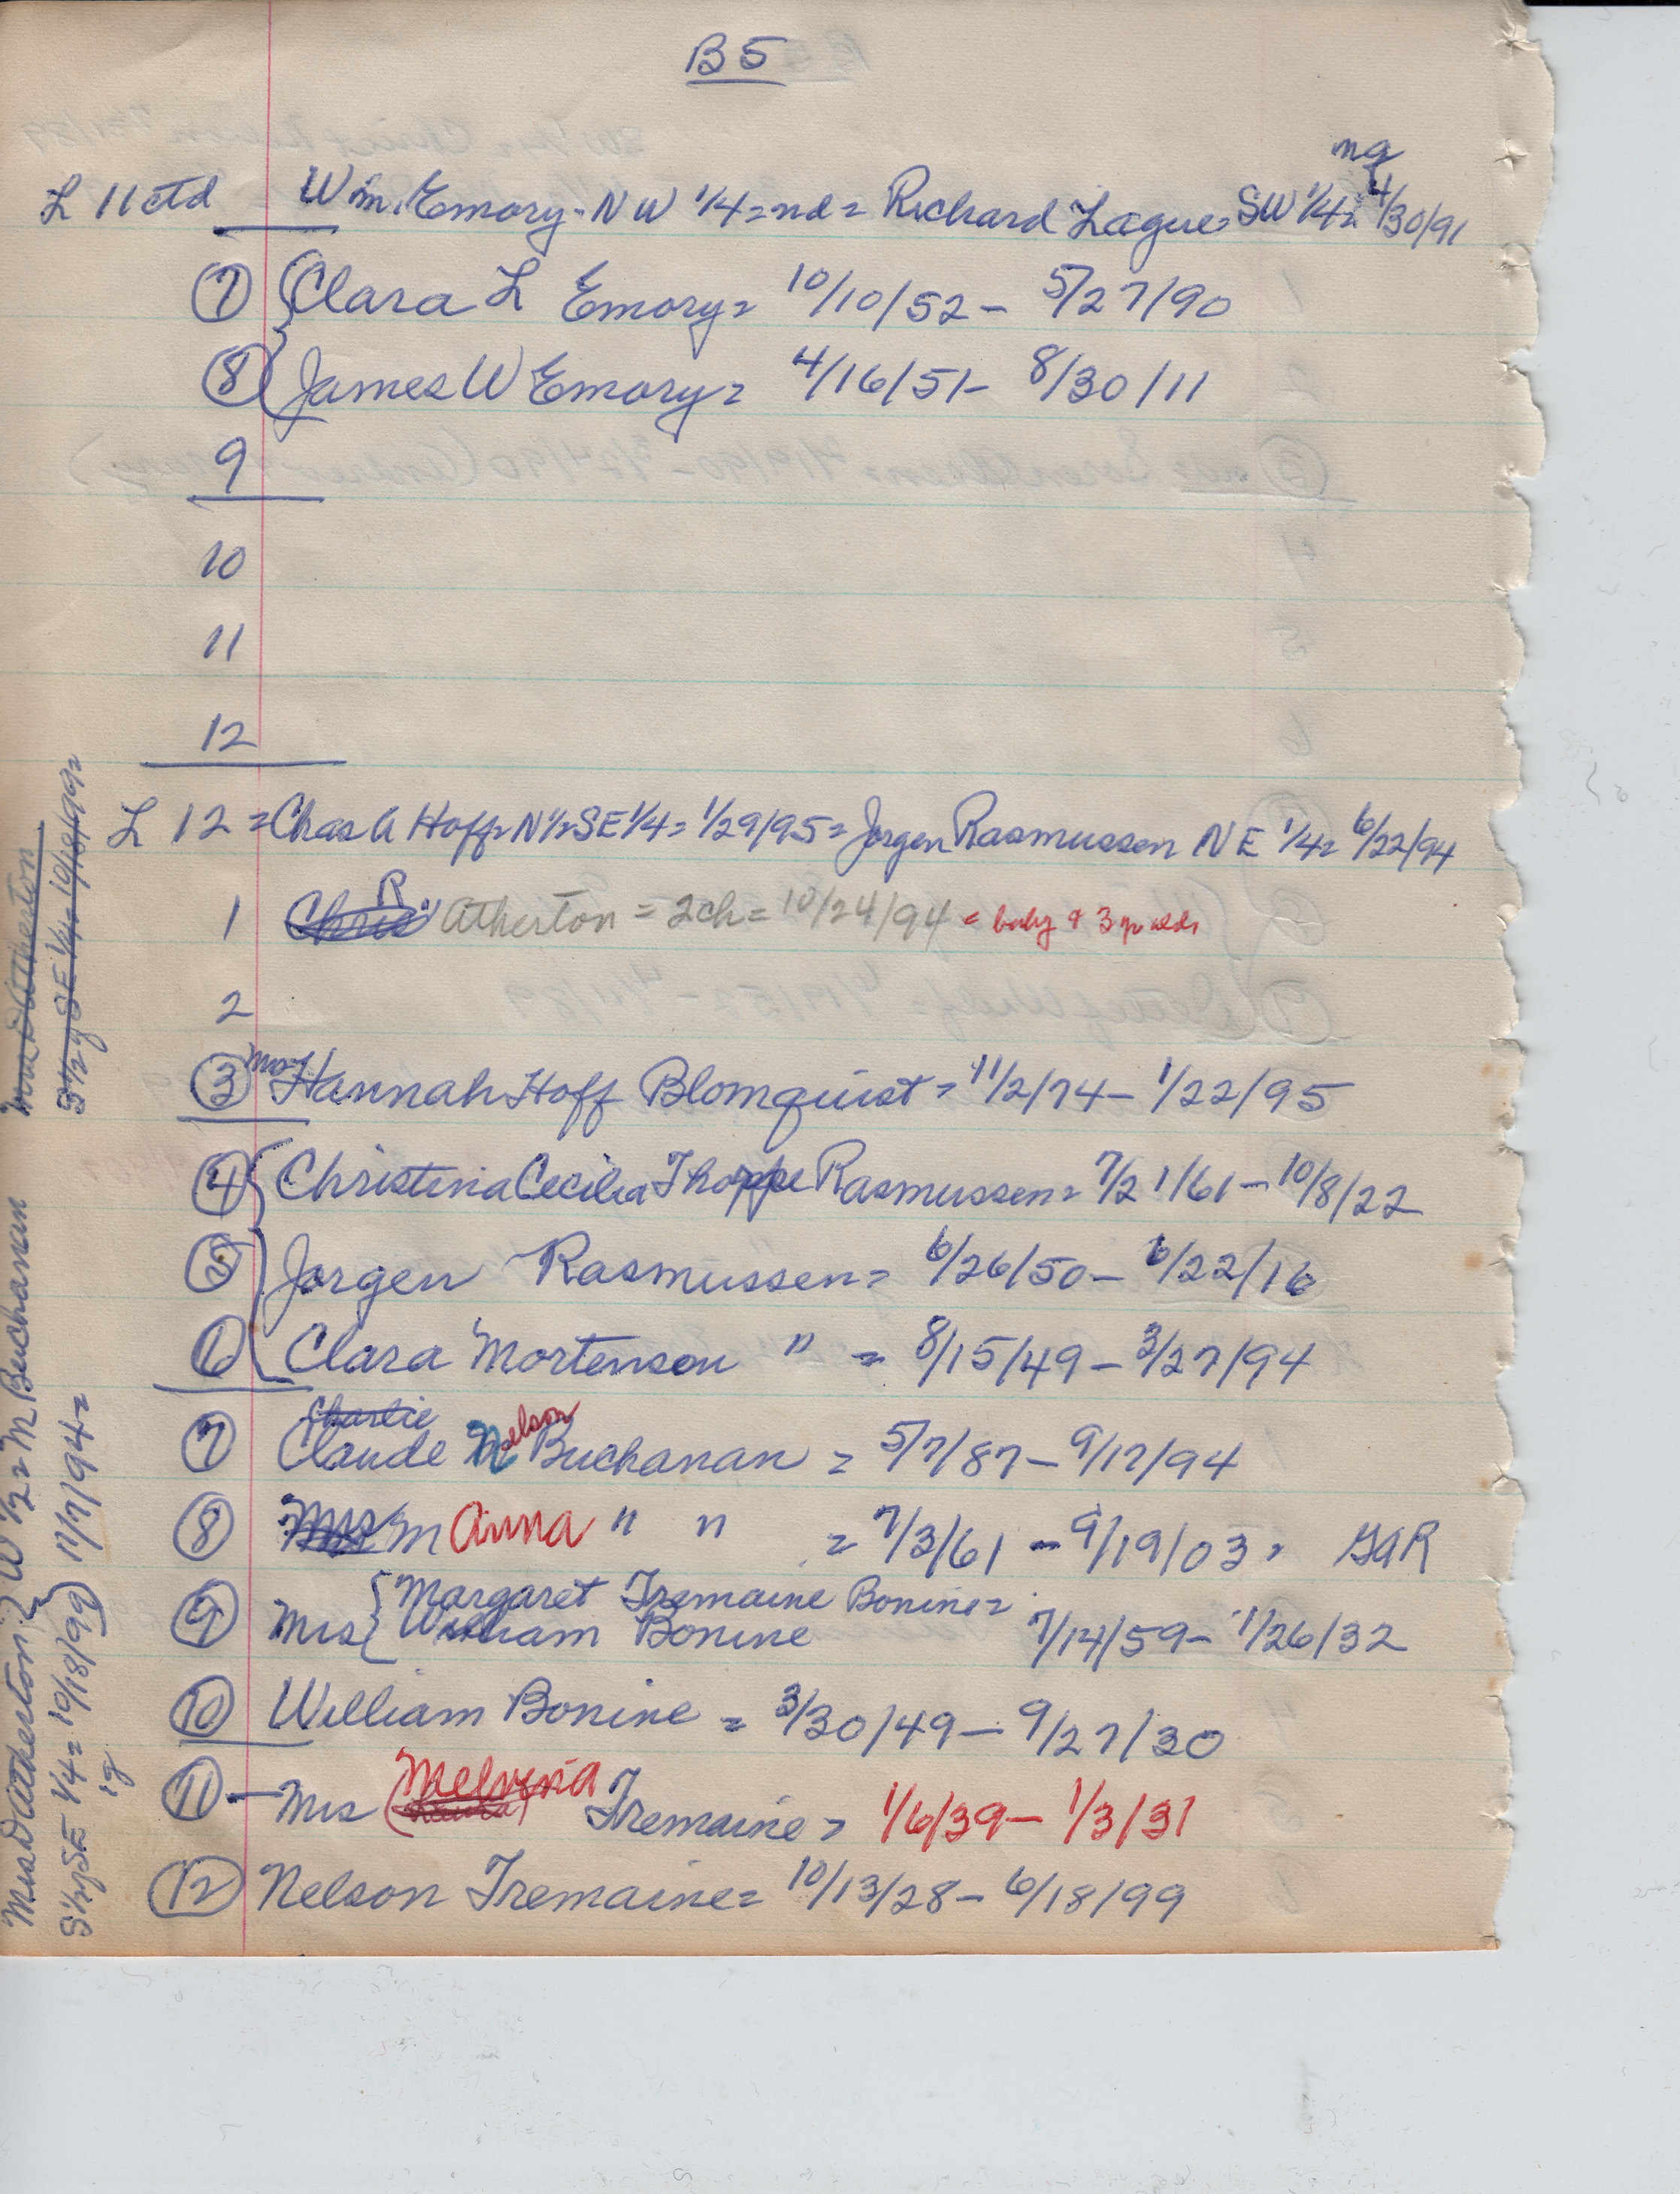 B 5
L 11 ctd Wm. Emory - NW 1/4 = nd = Richard Lague = SW 1/4 = 4/30/91
ng
7 Clara L Emory = 10/10/52 - 5/27/90
8 James W Emory = 4/16/51 - 8/30/11
9
10
11
12
L 12 = Chas A Hoff = N 1/2 SE 1/4 = 1/29/95 = Jorgen Rasmussen NE 1/4 = 6/22/94
1 Chris R. Atherton = 2 ch = 10/24/94 = baby & 3 yr olds
2
3 Mrs Hannah Hoff Blomquist = 11/2/74 - 1/22/95
4 Christena Cecilia Thoppe Rasmussen = 7/21/61 - 10/8/22
5 Jorgen Rasmussen = 6/26/50 - 6/22/16
6 Clara Mortenson " = 8/15/49 - 3/27/94
Charlie
7 Claude Nelson Buchanan = 5/7/87 - 9/17/94
8 Mrs M Anna " " = 7/3/61 - 9/19/03 = GAR
Margaret Tremaine Bonine =
9 Mrs William Bonine 7/14/59 - 1/26/32
10 William Bonine = 3/30/49 - 9/27/30
11 - Mrs Melvina Tremaine = 1/6/39 - 1/3/31
12 Nelson Tremaine = 10/13/28 - 6/18/99
Mrs D Atherton W 1/2 = M Buchanan
S 1/2 of SE 1/4 = 10/18/99 17/7/94 =
D Atherton
S 1/2 of SE 1/4 = 10/18/99 =